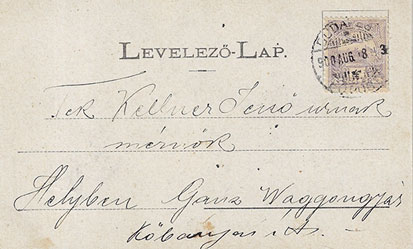 LEVELEZŐ-LAP.
BUDAPEST
900 AUG. 8
Tek Kellner Jenő urnak
mérnök
Helyben Ganz Waggongyár
Kőbányai út.